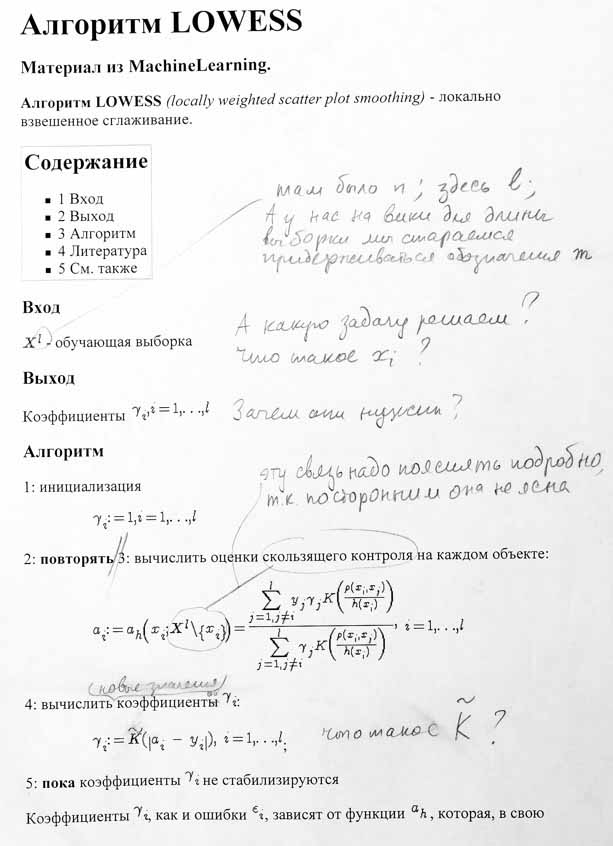 Алгоритм LOWESS
Материал из MachineLearning.
Алгоритм LOWESS (locally weighted scatter plot smoothing) - локально
взвешенное сглаживание.
Содержание
1 Вход
2 Выход
3 Алгоритм
4 Литература
5 См. также
там было n; здесь l;
А у нас на вики для длины
выборки мы стараемся
придерживаться обозначения m
Вход
X^l - обучающая выборка
А какую задачу решаем?
Что такое x_i?
Выход
Коэффициенты γ_i, i = 1,...,l
Зачем они нужны?
Алгоритм
эту связь надо пояснять подробно,
т.к. посторонним она не ясна
1: инициализация
γ_i := 1, i = 1,...,l
2: повторять 3: вычислить оценки скользящего контроля на каждом объекте:
a_i := a_h(x_i; X^l \ {x_i}) = \frac{\sum_{j=1, j≠i}^{l} y_j γ_j K(\frac{ρ(x_i, x_j)}{h(x_i)})}{\sum_{j=1, j≠i}^{l} γ_j K(\frac{ρ(x_i, x_j)}{h(x_i)})}, i = 1,...,l
(новые значения)
4: вычислить коэффициенты γ_i:
γ_i := K̃(|a_i − y_i|), i = 1,...,l;
что такое K̃ ?
5: пока коэффициенты γ_i не стабилизируются
Коэффициенты γ_i, как и ошибки ε_i, зависят от функции a_h, которая, в свою